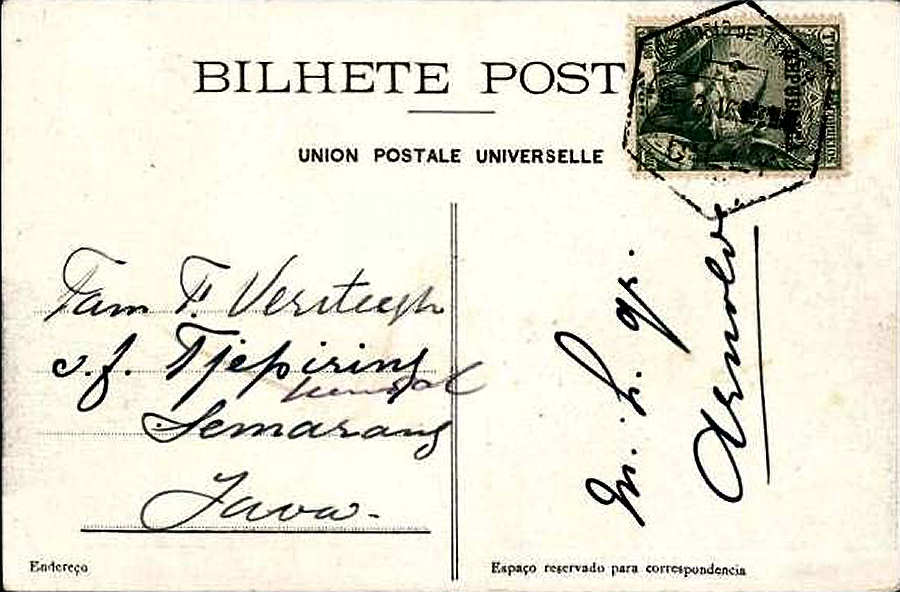 BILHETE POST
UNION POSTALE UNIVERSELLE
REPUBLICA
Fam T. Versteegh
s.f. Tjepiring
Kendal
Semarang
Java.
m. h. gr.
Arnold
Endereço
Espaço reservado para correspondencia